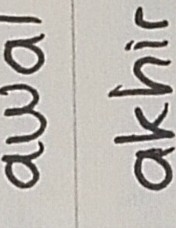 awal
akhir